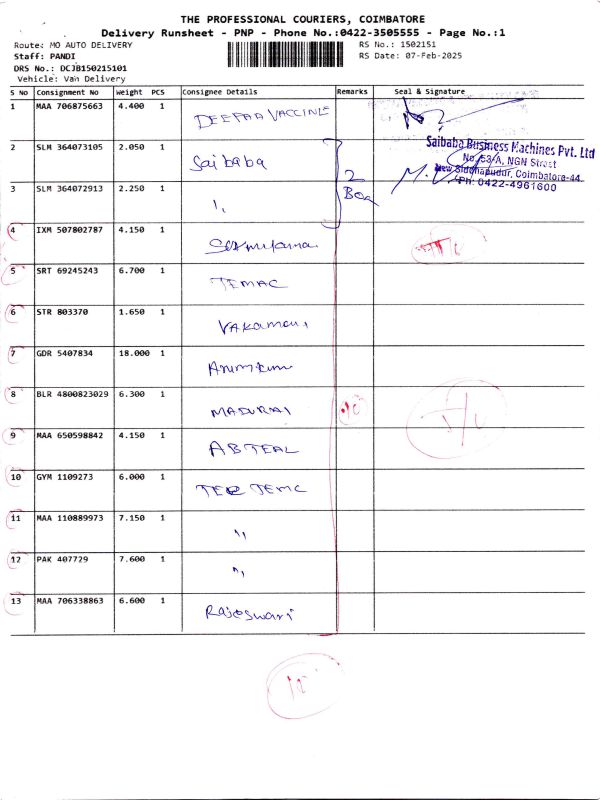 THE PROFESSIONAL COURIERS, COIMBATORE
Delivery Runsheet - PNP - Phone No.:0422-3505555 - Page No.:1
Route: MO AUTO DELIVERY
RS No.: 1502151
Staff: PANDI
RS Date: 07-Feb-2025
DRS No.: DCJB150215101
Vehicle: Van Delivery
S No Consignment No Weight PCS Consignee Details Remarks Seal & Signature
1 MAA 706875663 4.400 1 DEEPAA VACCINE
2 SLM 364073105 2.050 1 Saibaba
2 Box
Saibaba Business Machines Pvt. Ltd
No. 53/A, NGN Street
New Siddhapudur, Coimbatore-44.
Ph: 0422-4961600
3 SLM 364072913 2.250 1 "
4 IXM 507802787 4.150 1
5 SRT 69245243 6.700 1 TEMAC
6 STR 803370 1.650 1
7 GDR 5407834 18.000 1
8 BLR 4800823029 6.300 1 MADURAI
9 MAA 650598842 4.150 1 ABTEAL
10 GYM 1109273 6.000 1 TEMC
11 MAA 110889973 7.150 1 "
12 PAK 407729 7.600 1 "
13 MAA 706338863 6.600 1 Rajeswari